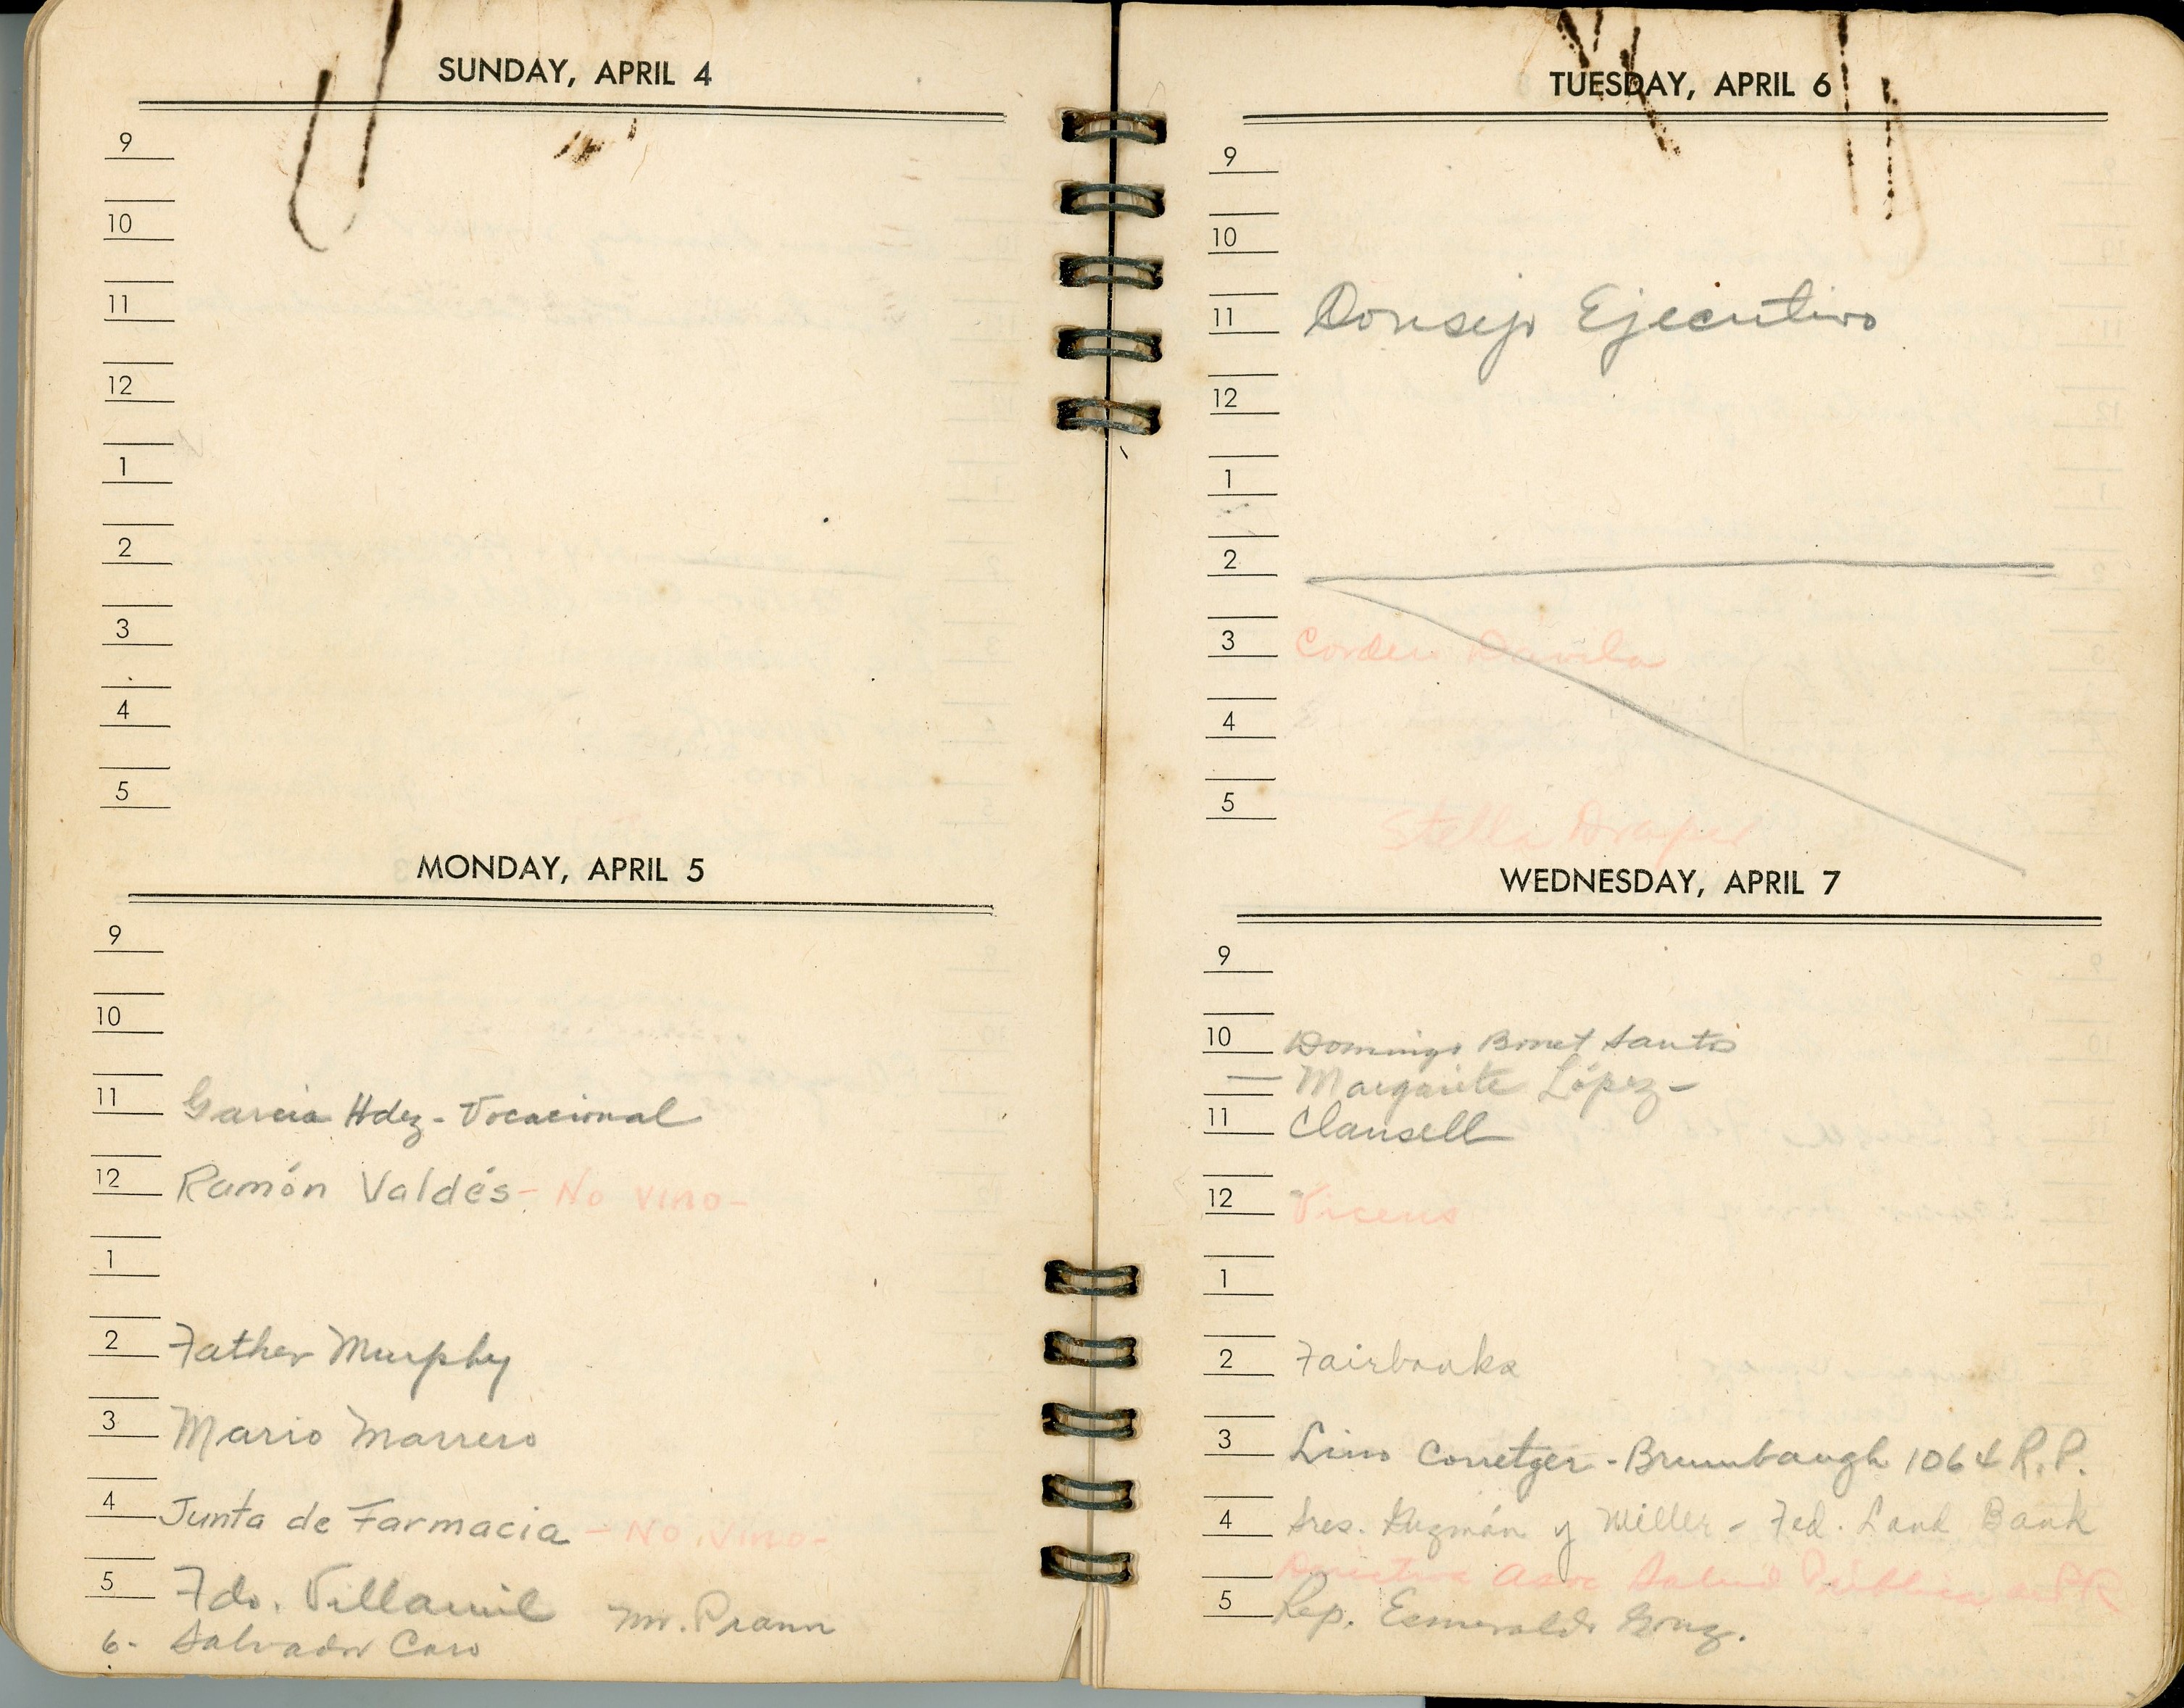 SUNDAY, APRIL 4
9
10
11
12
1
2
3
4
5
MONDAY, APRIL 5
9
10
11 Garcia Hdez - Vocacional
12 Ramón Valdés - No vino -
1
2 Father Murphy
3 Mario Marrero
4 Junta de Farmacia - No vino -
5 Fdo. Villamil Mr. Prann
6 - Salvador Caro
TUESDAY, APRIL 6
9
10
11 Consejo Ejecutivo
12
1
2
3 Cordero Davila
4
5
Stella Draper
WEDNESDAY, APRIL 7
9
10 Domingo Bonet Santos
— Margarite López -
11 Clausell
12 Vicens
1
2 Fairbanks
3 Lino Corretjer - Brumbaugh 1064 R.P.
4 Sres. Guzmán y Miller - Fed. Land Bank
Directiva Asoc Salud Pública de PR
5 Rep. Esmeraldo Gonz.